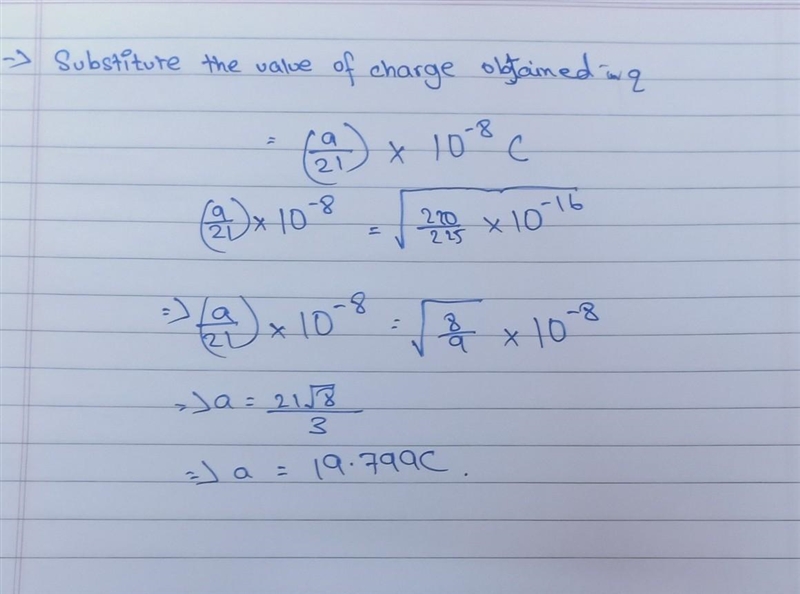 => Substiture the value of charge obtained in q
= (a/21) × 10^-8 C
(a/21) × 10^-8 = √(220/225 × 10^-16)
=> (a/21) × 10^-8 = √(8/9) × 10^-8
=> a = 21√8/3
=> a = 19.799C.